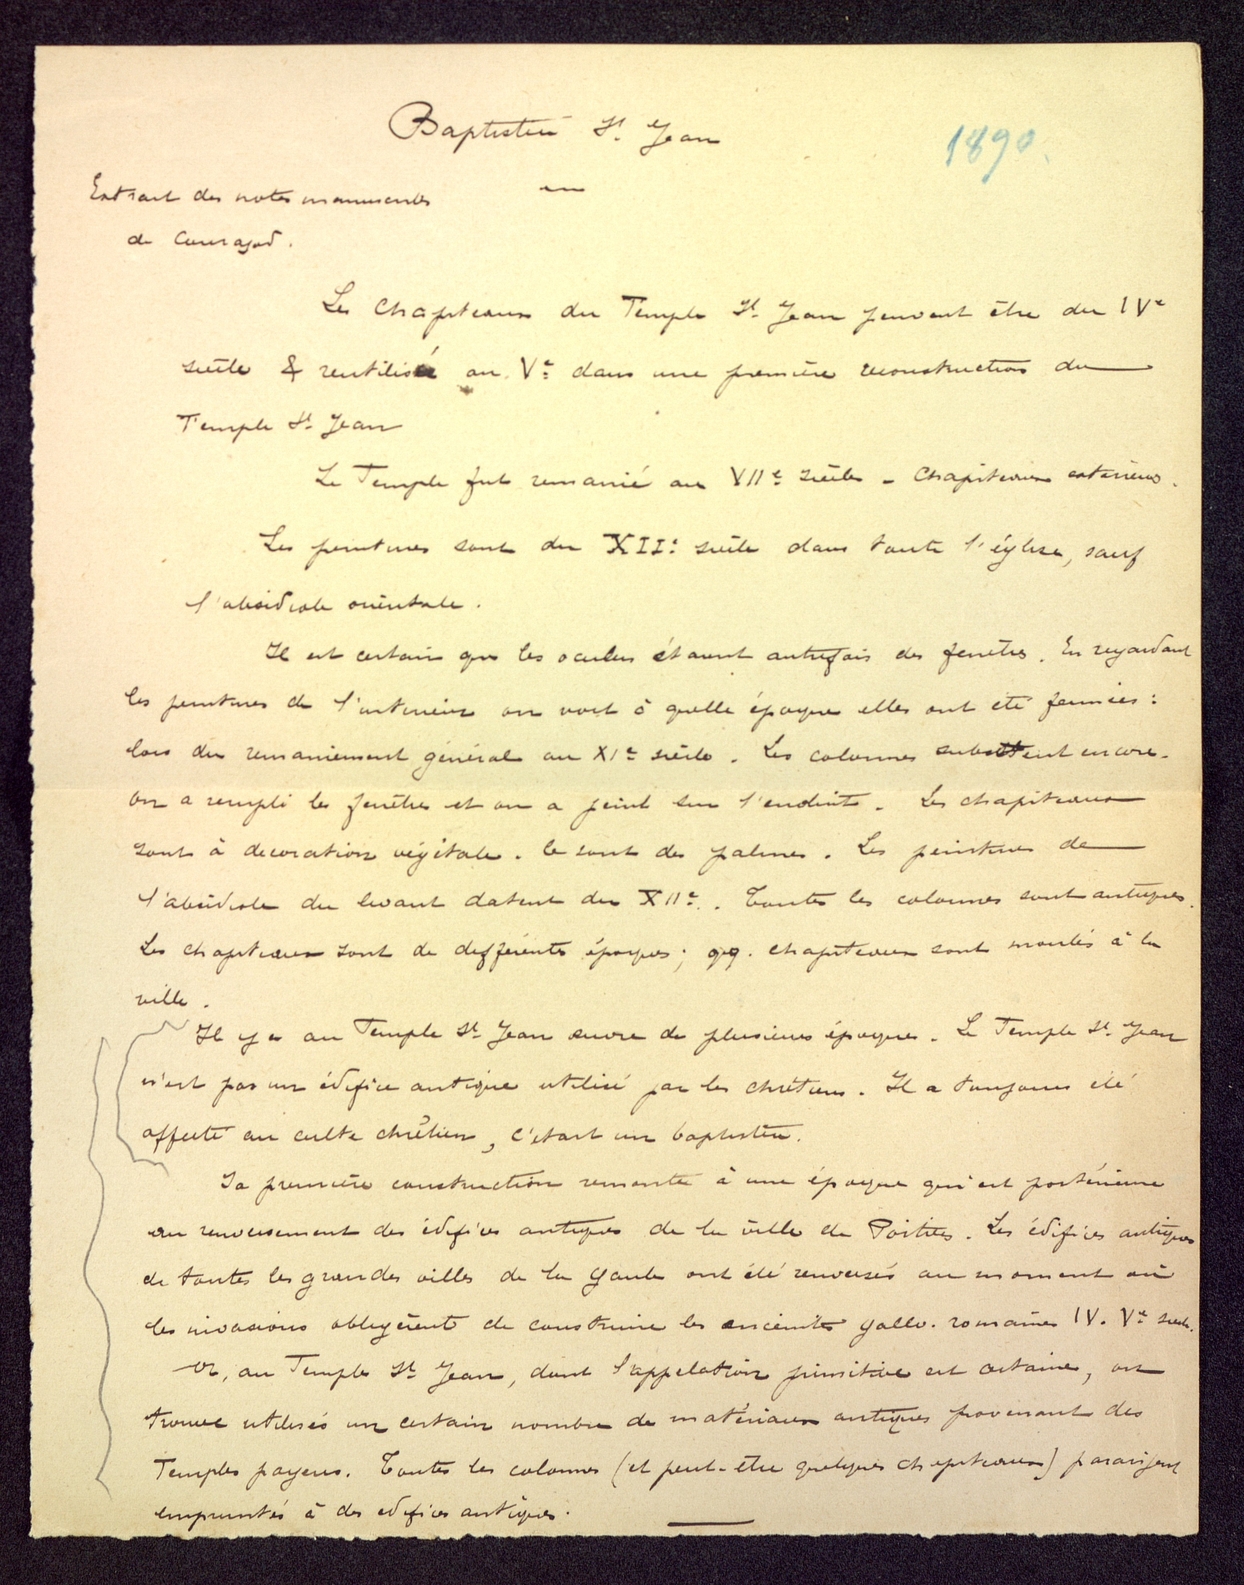 Baptistère St Jean
1890.
Extrait des notes manuscrites
de Courajod.
Les chapiteaux du Temple St Jean peuvent être du IVe
siècle & réutilisés au Ve dans une première reconstruction du
Temple St Jean
Le Temple fut remanié au VIIe siècle - Chapiteaux extérieurs.
Les peintures sont du XIIe siècle dans toute l'église, sauf
l'absidiole orientale.
Il est certain que les oculus étaient autrefois des fenêtres. En regardant
les peintures de l'intérieur on voit à quelle époque elles ont été fermées :
lors du remaniement général au XIe siècle. Les colonnes subsistent encore.
On a rempli les fenêtres et on a peint sur l'enduit. Les chapiteaux
sont à décoration végétale. Ce sont des palmes. Les peintures de
l'absidiole du levant datent du XIIe. Toutes les colonnes sont antiques.
Les chapiteaux sont de différentes époques ; qq. chapiteaux sont moulés à la
ville.
Il y a au Temple St Jean œuvre de plusieurs époques. Le Temple St Jean
n'est pas un édifice antique utilisé par les chrétiens. Il a toujours été
affecté au culte chrétien, c'était un baptistère.
Sa première construction remonte à une époque qui est postérieure
au renversement des édifices antiques de la ville de Poitiers. Les édifices antiques
de toutes les grandes villes de la Gaule ont été renversés au moment où
les invasions obligèrent de construire les enceintes gallo-romaines IV. Ve siècle.
Or, au Temple St Jean, dont l'appelation primitive est certaine, on
trouve utilisés un certain nombre de matériaux antiques provenant des
Temples payens. Toutes les colonnes (et peut-être quelques chapiteaux) paraissent
empruntés à des édifices antiques.